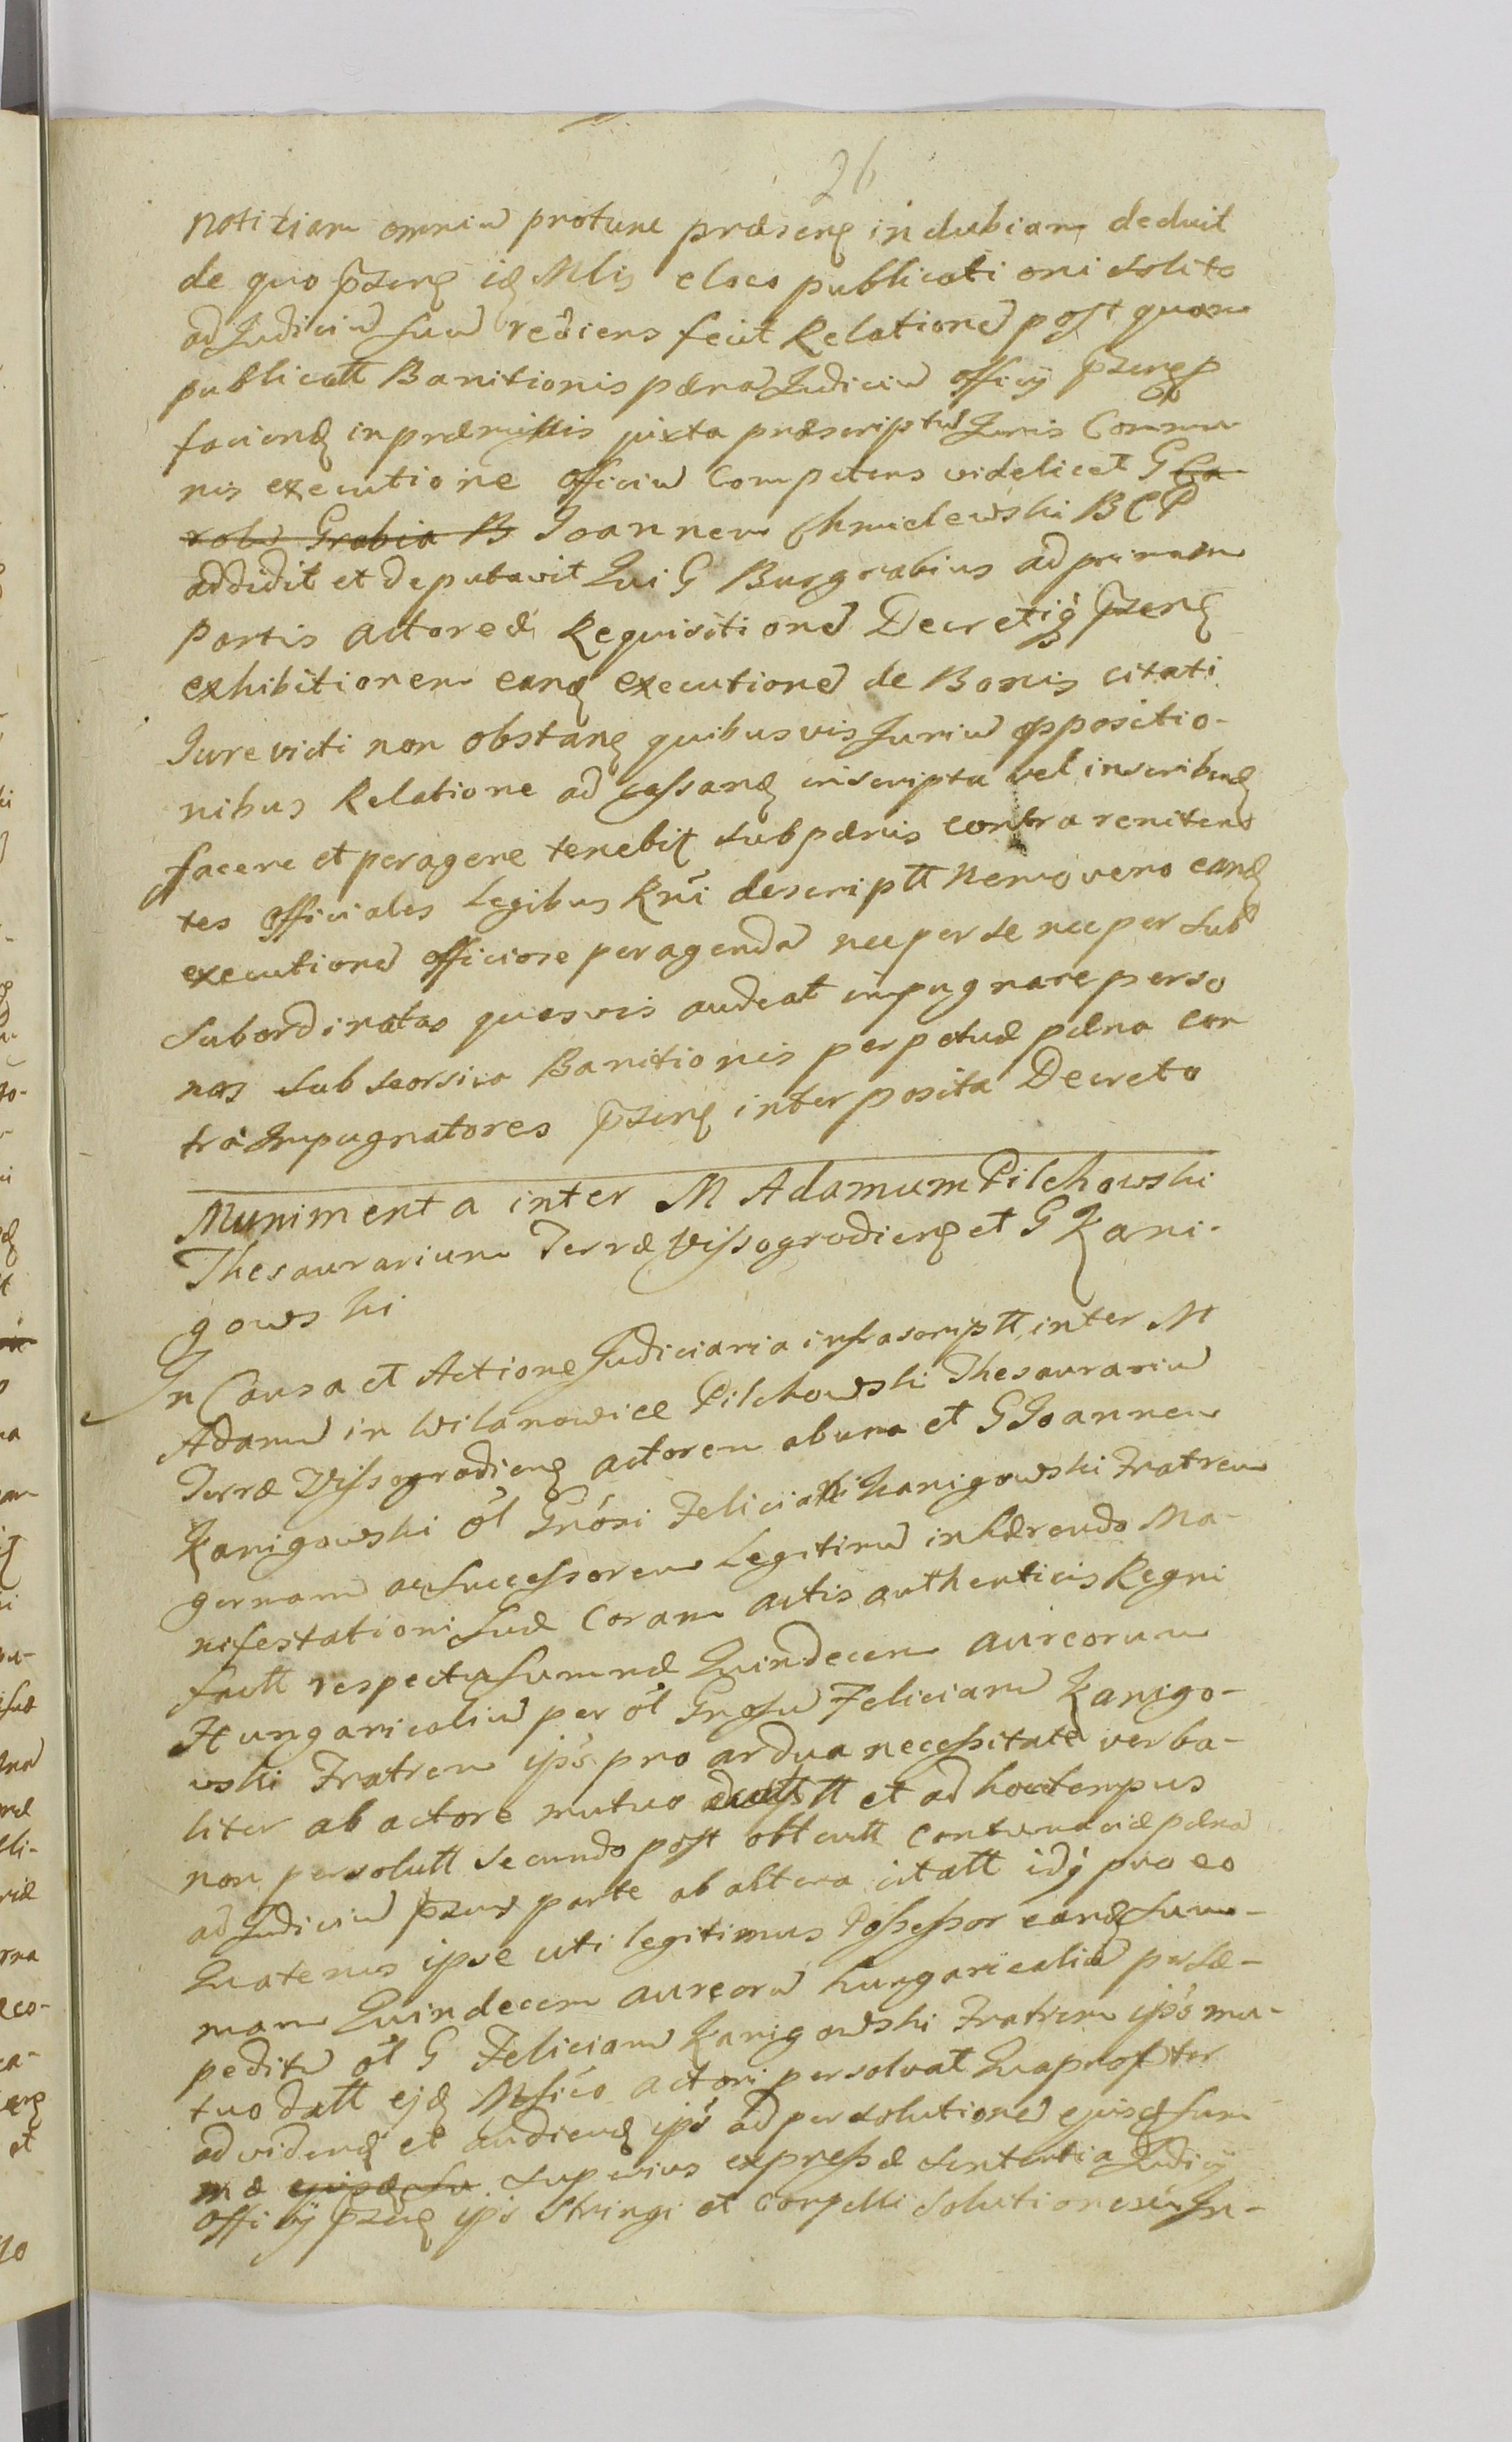 26
notitiam omniu protunc præsenꝫ indubiam deduxit
de quo p̃zenꝫ iꝫ Mlis eloco publicationi solito
ad Judiciu suu rediens fecit Relationē post quam
publicatt Banitionis pæna Judiciu officij p̃zenꝫ p
faciendꝫ inpræmissis juxta præscriptu Juris Commu
nis executione officiu Competens videlicet G Ca
rolu Grabia B Joannem Chmielewski B C P
addidit et deputavit Qui G Burgrabius ad primam
Partis actoreæ Requisitionē Decretiq́ p̃zenꝫ
exhibitionem eanꝫ executionē de Bonis citati
Jurevicti non obstanꝫ quibusvis Juriu oppositio-
nibus Relatione ad cassanꝫ inscripta vel inscribenꝫ
facere et peragere tenebiꝫ subpænis contra reniten
tes officiales Legibus Rni descriptt Nemo vero eanꝫ
executionē officiose peragendā nec per se nec per sub
subordinatas quasvis audeat impugnare perso
nas sub seorsiva Banitionis perpetuæ pæna con
tra Impugnatores p̃zenꝫ interposita Decreto
Munimenta inter M Adamum Pilchowski
Thesaurarium Terræ Vissogrodienꝫ et G Kani-
gowski
In Causa et Actione Judiciaria infrascriptt inter M
Adamu in Wilanowice Pilchowski Thesaurariu
Terræ Vissogrodienꝫ actorem abuna et G Joannem
Kanigowski ól Gnósi Feliciani Kanigowski Fratrem
germam ac Successorem Legitimu inhærendo Ma-
nifestationi suæ Coram actis authenticis Regni
factt respectu summæ Quindecem aureorum
Hungaricaliu per ól Gnosu Feliciam Kanigo-
wski Fratrem ipś pro ardua necessitate verba-
liter ab actore mutuo tt et ad hoctempus
non persolutt secundo post obtentt Contumaciæ pænā
ad Judiciu p̃zens parte ab altera citatt idq́ pro eo
Quatenus ipse uti legitimus Possessor eanꝫ sum-
mam Quindecem aureorū hungaricaliu per sæ-
peditū ól G Feliciam Kanigowski Fratrem ipś mu-
tuo datt ejꝫ Msico actori persolvat Quapropter
ad videnꝫ et audienꝫ ipś ad persolutionē ejusꝫ sum
mæ ejusꝫ su superius expressæ sententia Judicij
officij p̃zenꝫ ipś stringi et compelli solutionesú In-